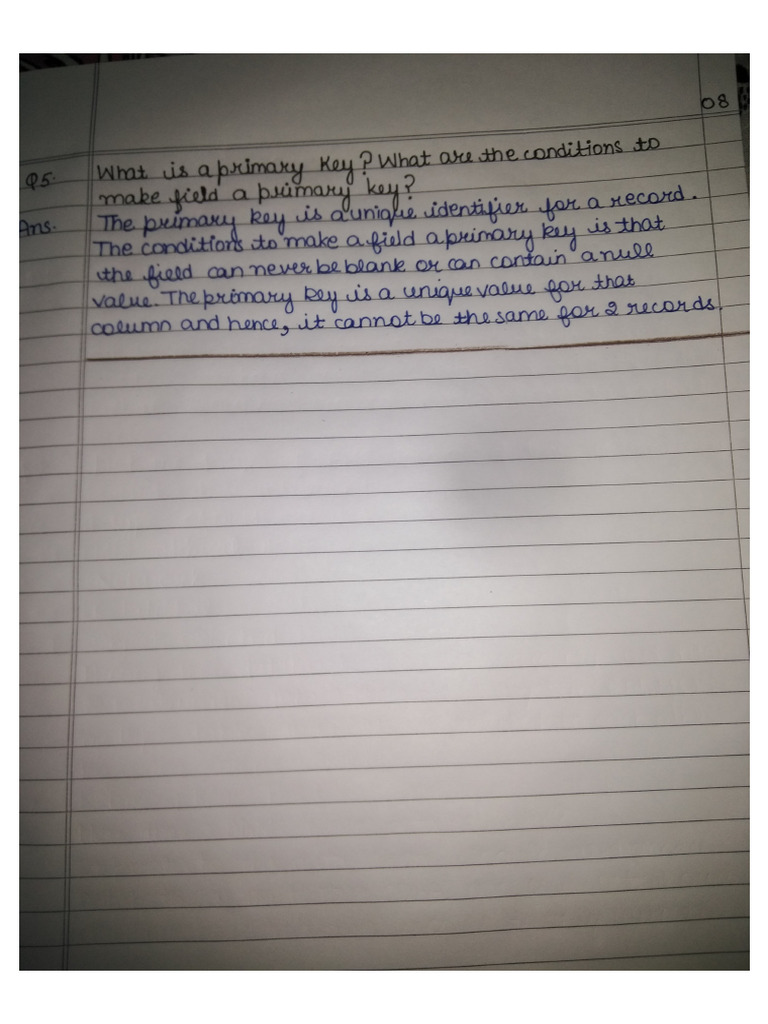 08
Q5. What is a primary key? What are the conditions to
make field a primary key?
Ans. The primary key is a unique identifier for a record.
The conditions to make a field a primary key is that
the field can never be blank or can contain a null
value. The primary key is a unique value for that
column and hence, it cannot be the same for 2 records.